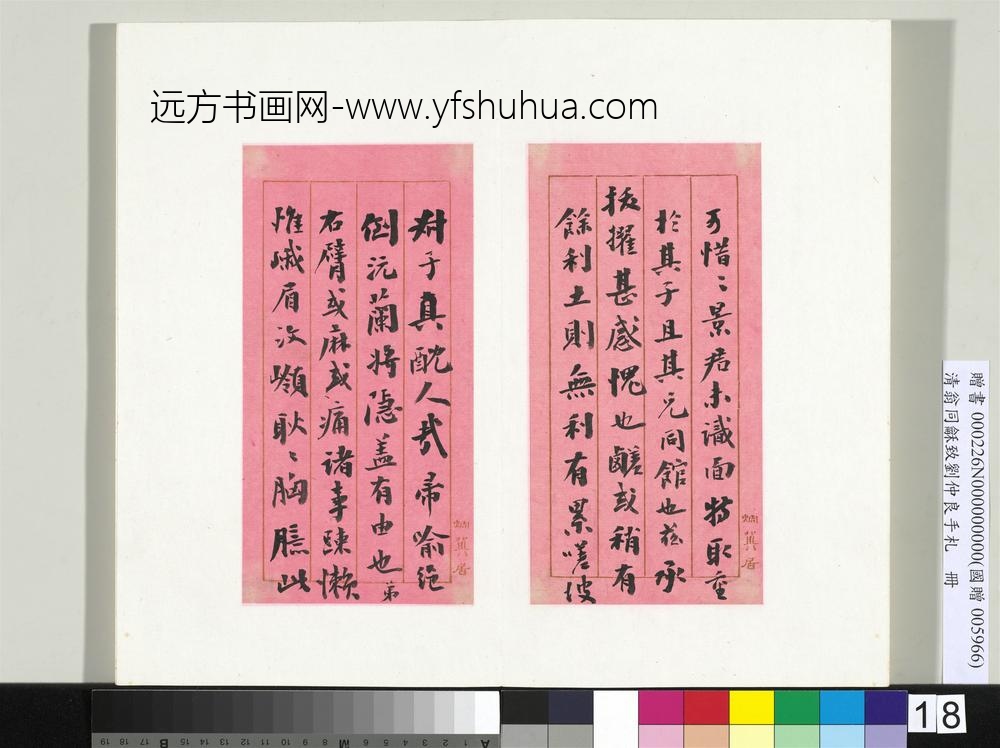 远方书画网-www.yfshuhua.com
可惜〻景居未識面特取重
於其子且其兄同館也茲承
拔擢甚感愧也鹺或稍有
餘利土則無利有累嗟彼
子真酖人貳帚喻絕
倒沅蘭將隱盖有由也弟
右臂或麻或痛諸事踈懶
惟峨眉汶嶺耿〻胸臆此
贈書 000226N000000000(國贈 005966)
清翁同龢致劉仲良手札 冊
18